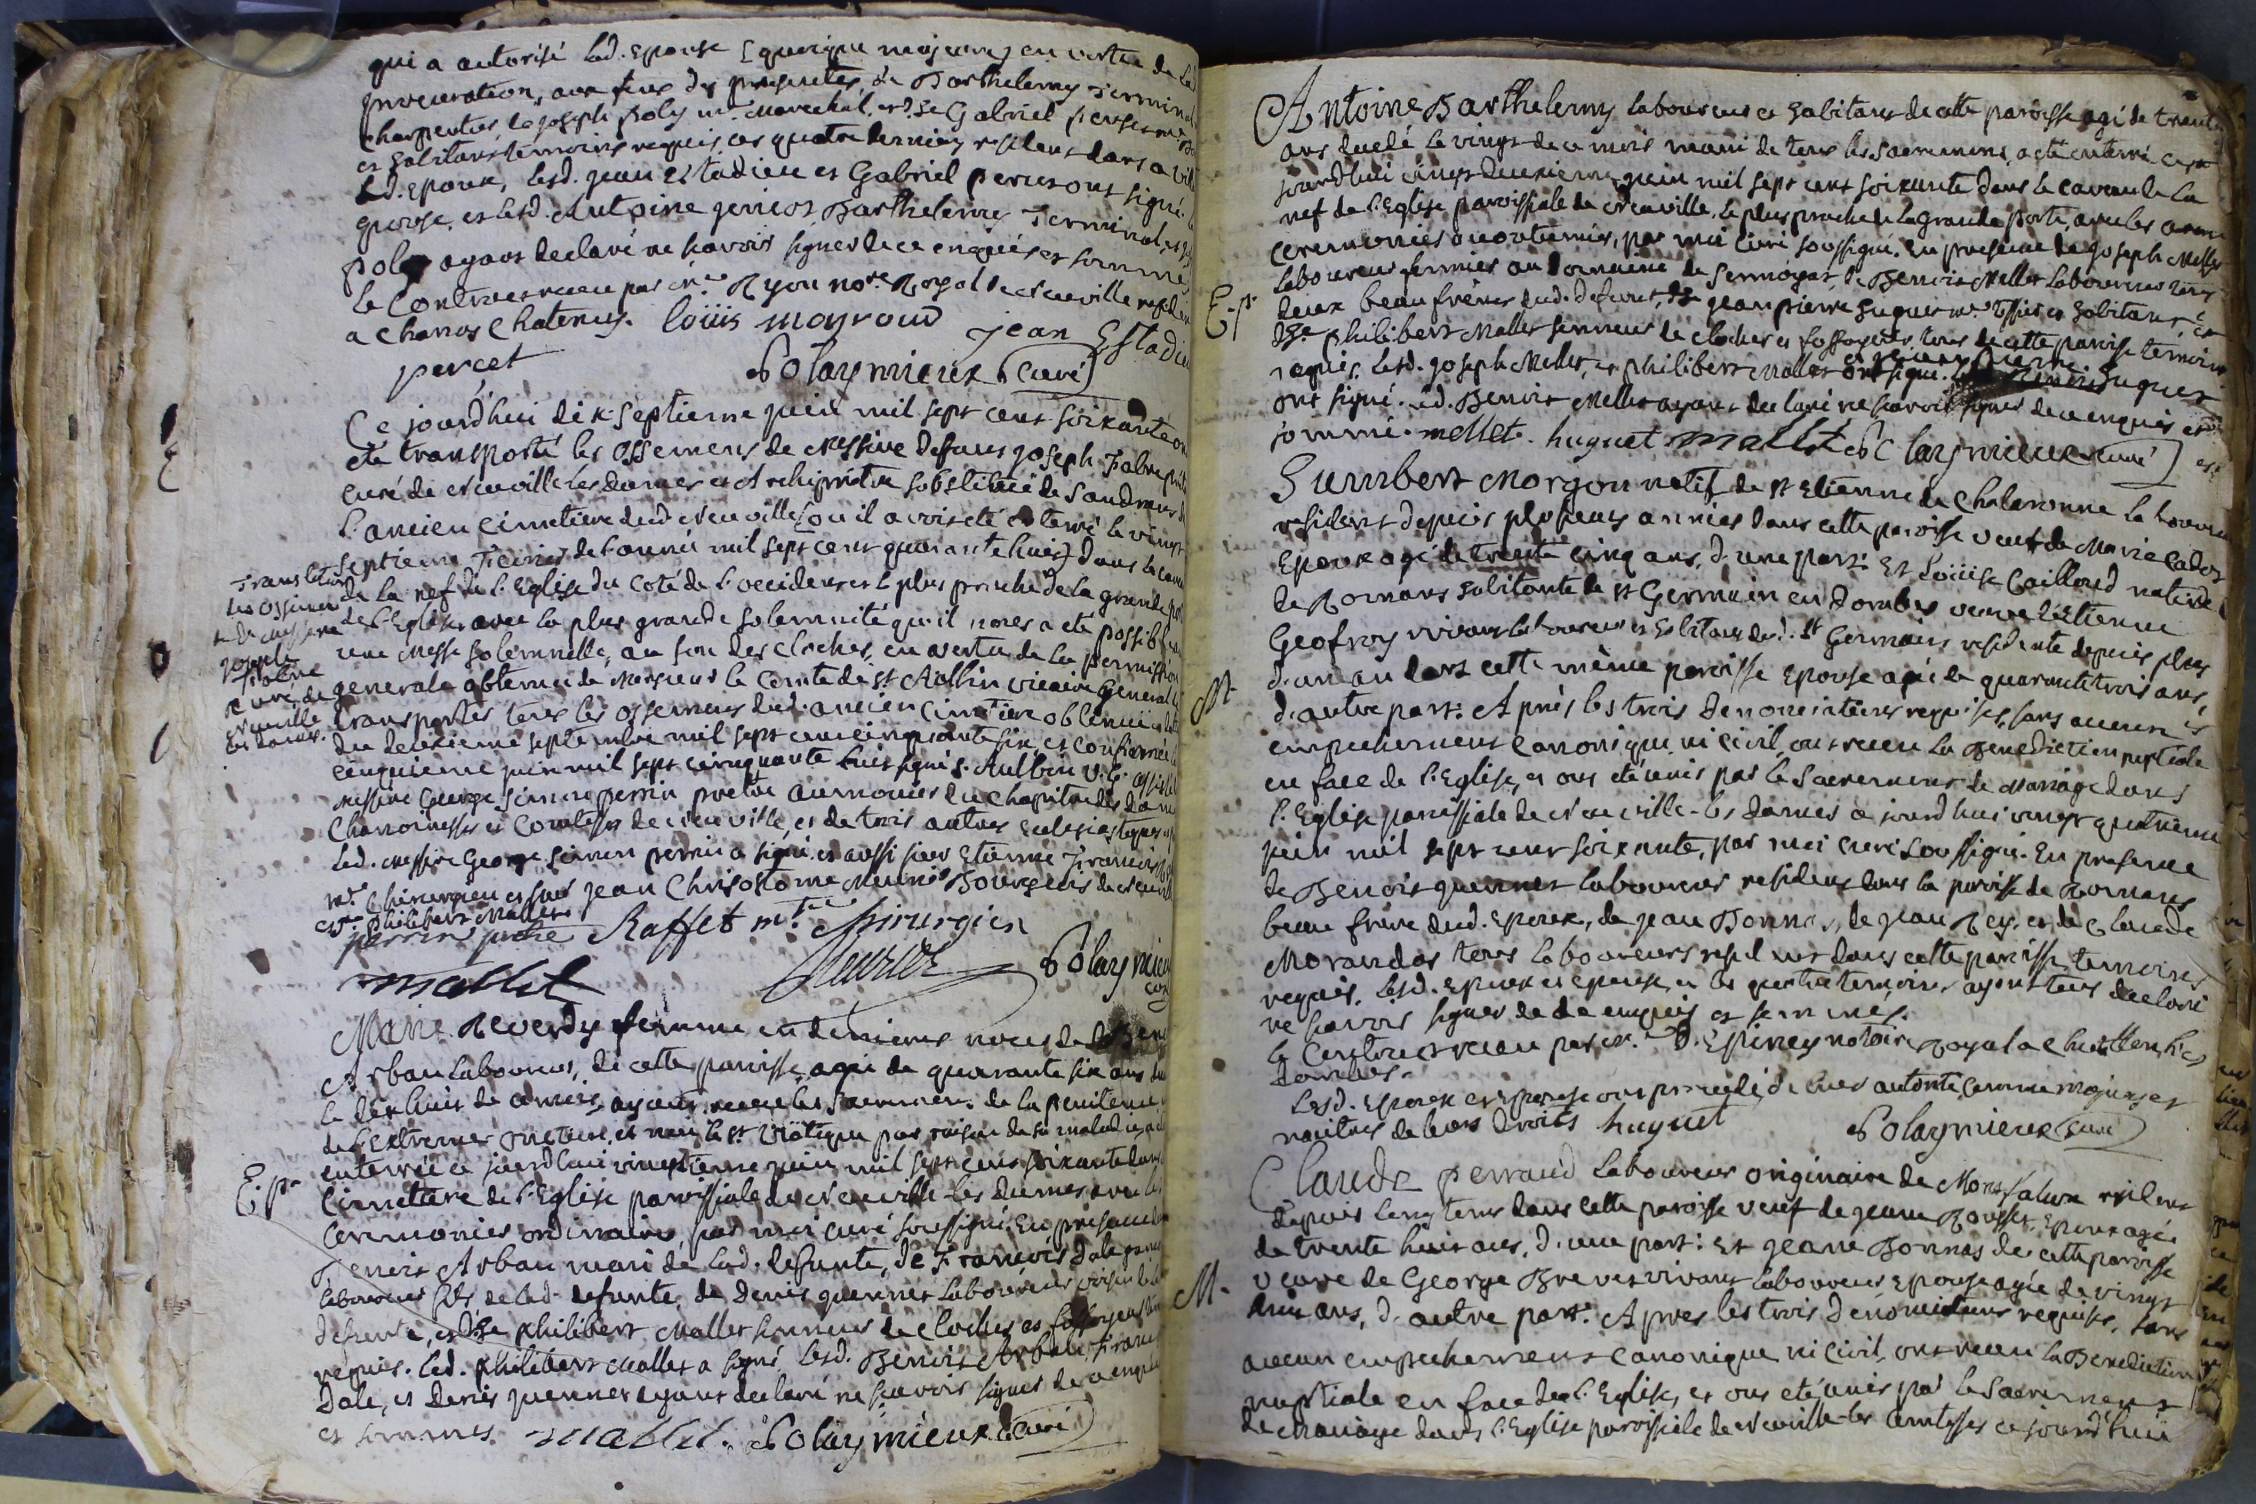 qui a autorisé lad. Epouse (quoique majeure) en vertu de lad
procuration, aux fins des presentes, de Barthelemy Terminal
charpentier, de joseph Poly me. Marechal, et de Gabriel percet me
et habitans temoins requis, ces quatre derniers residens dans a
Led. Epoux, lesd. jean Estadieu et Gabriel percet ont signé.
et lesd. Antoine Barthelemy Terminal, et
poly ayant declaré ne savoir signer de ce enquis et sommé
le Contract receu par me Ryon nore. Royal de neuville resident
a Chanos Chatenay. loüis moyroud jean Estadieu
percet Polaymieux (curé)
Ce jourd'hui dix-septieme juin mil sept cent soixante ont
eté transporté les Ossemens de Messire Defunt joseph Fabre
curé de neuville les dames et Archiprêtre substitué de Sandrans de
l'ancien Cimetiere dud neuville (ou il avoit eté enterré le vingt
septieme Fevrier de l'année mil sept cent quarante huit) dans le caveau
de la nef de l'Eglise du coté de l'occident et le plus proche de la grande porte
de l'Eglise avec la plus grande solemnité qu'il nous a eté possible
une Messe solemnelle, au son des cloches, en vertu de la permission
generale obtenue de Monsieur le Comte de St Aulbin vicaire General
transporter tous les ossemens dud. ancien Cimetiere obtenue
du deuxieme septembre mil sept cent cinquante six, et confirmée
cinquieme juin mil sept cent cinquante huit signé S. Aulbin V. G. assisté
Messire George Simon perrin prêtre aumonier du Chapitre des dames
Chanoinesses et Comtesses de neuville, et de trois autres Eclesiastiques
Led. Messire George Simon perrin a signé et aussi sieur Etienne François
me. Chirurgien et sieur jean Chrisostome Meunier Bourgeois de neuville
et Philibert Mallet.
perrin prêtre Raffet mtre Chirurgien
mallet Meunier Polaymieux
curé
Translation
des Ossemens
de Messire
joseph
Fabre
curé de
neuville
les dames.
Marie Reverdy femme en dernieres noces de Benoit
Arban Laboureur, de cette paroisse, agée de quarante six ans
le dix huit de ce mois, ayant receu les Sacremens de la penitence
de l'Extreme onction, et non le St Viatique par raison de sa maladie, a eté
enterrée ce jourd'hui vingtieme juin mil sept cent soixante dans
Cimetiere de l'Eglise paroissiale de neuville-les dames avec les
Ceremonies ordinaires, par moi curé soussigné. En presence de
Benoit Arban mari de lad. defunte, de François Dale
laboureur fils de lad. defunte, de Denis quennet Laboureur voisin de la
defunte, et de Philibert Mallet sonneur de Cloches et fossoyeur
requis. Led. Philibert Mallet a signé, lesd. Benoit Arban, François
Dale, et Denis quennet ayant declaré ne savoir signer de ce enquis
et sommés. mallet. Polaymieux curé
E. pr.
Antoine Barthelemy laboureur et habitant de cette paroisse agé de trente
ans decedé le vingt de ce mois muni de tous les Sacremens, a eté enterré ce
jourd'hui vingt deuxieme juin mil sept cent soixante dans le caveau de la
nef de l'Eglise paroissiale de neuville, le plus proche de la grande porte, avec les
ceremonies accoutumées, par moi curé soussigné. En presence de joseph Mellet
Laboureur fermier au domaine de Sermoyat, de Benoit Mellet Laboureur tous
deux beau frères dud. defunt, de jean pierre huguet me Tissier et habitant
de Philibert Mallet sonneur de cloches et fossoyeur, tous de cette paroisse temoins
requis. Lesd. joseph Mellet, et philibert Mallet et jean pierre huguet
ont signé. Led. Benoit Mellet ayant declaré ne savoir signer de ce enquis et
sommé. mellet. huguet mallet Polaymieux curé
E. pr.
Humbert Morgon natif de St Etienne de Chalaronne laboureur
resident depuis plusieurs années dans cette paroisse veuf de Marie Cadot
Epoux agé de trente cinq ans, d'une part: Et Loüise Cailloud native
de Romans habitante de St Germain en dombes veuve d'Etienne
Geofroy vivant laboureur et habitant dud. St Germain residente depuis plus
d'un an dans cette même paroisse Epouse agée de quarante trois ans,
d'autre part: Après les trois denonciations requises, sans aucun
empechement Canonique ni civil ont receu la Benediction nuptiale
en face de l'Eglise, et ont eté unis par le Sacrement de Mariage dans
l'Eglise paroissiale de neuville-les dames ce jourd'hui vingt quatrieme
juin mil sept cent soixante, par moi curé soussigné. En presence
de Benoit quennet laboureur resident dans la paroisse de Romans
beau frère dud. Epoux, de jean Bonnes, de jean Rey, et de Claude
Morandas tous Laboureurs residens dans cette paroisse temoins
requis. Lesd. Epoux et Epouse, et les quatre temoins ayant tous declaré
ne savoir signer de ce enquis et sommés.
le Contract receu par me D'Epiney notaire royal a Chatillon les
Dombes.
Lesd. Epoux et Epouse ont procedé de leur autorité comme majeurs et
maitres de leurs Droits huguet Polaymieux curé
M.
Claude perraud laboureur originaire de Monfalcon resident
depuis longtems dans cette paroisse veuf de jeanne Rousset, Epoux agé
de trente huit ans, d'une part: Et jeanne Bonnas de cette paroisse
veuve de George Brevet vivant laboureur Epouse agée de vingt
huit ans, d'autre part. Apres les trois denonciations requises, sans
aucun empechement Canonique ni Civil, ont receu la Benediction
nuptiale en face de l'Eglise, et ont eté unis par le Sacrement
de Mariage dans l'Eglise paroissiale de neuville-les Comtesses ce jourd'huï
M.